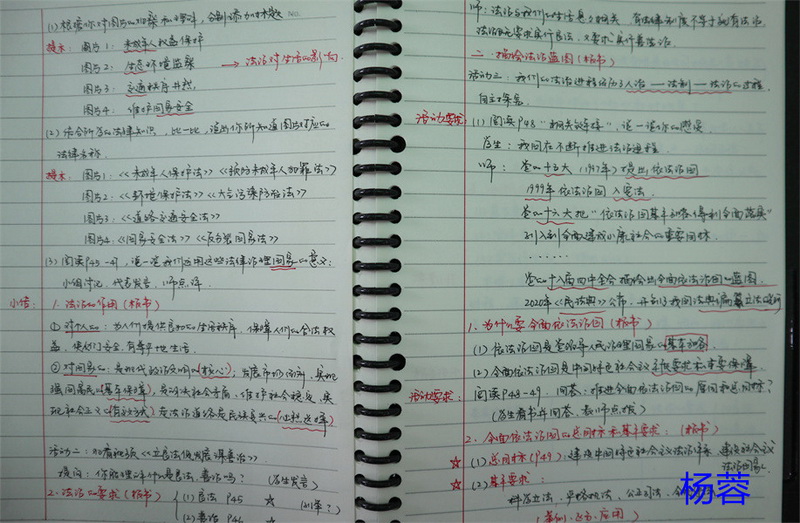 (1) 根据你对图片的观察和理解，分别添加小标题
提示：图片1：未成年人权益保护
图片2：生态环境监察 → 法治对生活的影响
图片3：交通秩序井然
图片4：维护国家安全
(2) 结合所学的法律知识，比一比，说出你所知道图片对应的
法律名称。
提示：图片1：《未成年人保护法》《预防未成年人犯罪法》
图片2：《环境保护法》《大气污染防治法》
图片3：《道路交通安全法》
图片4：《国家安全法》《反分裂国家法》
(3) 阅读P45-47，说一说我们运用这些法律治理国家的意义：
小组讨论，代表发言，师点评
小结：1. 法治的作用（板书）
① 对个人：为人们提供良好的生活秩序，保障人们的合法权
益，使人们安全、有尊严地生活
② 对国家：是现代政治文明的（核心）；发展市场经济，实现
强国富民的（基本保障）；是解决社会矛盾，维护社会稳定，实
现社会正义的（有效方式）走法治道路是民族复兴的（必然选择）
活动二：观看视频《立良法促发展谋善治》
提问：你能理解什么是良法、善治吗？（学生发言）
2. 法治的要求（板书） (1) 良法 P45 ☆
(2) 善治 P46 ☆
师：法治与我们的生活息息相关，有法律制度不等于就有法治，
法治既要求实行良法，又要求实行善治。
二、描绘法治蓝图（板书）
活动三：我们的法治进程经历了人治——法制——法治的过程，
活动要求：(1) 阅读P48“相关链接”，说一说你的感受
学生：我国在不断推进法治进程
师：党的十五大（1997年）提出依法治国
1999年依法治国入宪法
党的十六大把“依法治国基本方略得到全面落实”
列入到全面建设小康社会的重要目标
......
党的十八届四中全会描绘出全面依法治国的蓝图
2020年《民法典》公布，开创了我国法典编纂立法的先河
1. 为什么要全面依法治国（板书）
(1) 依法治国是党领导人民治理国家的基本方略
(2) 全面依法治国是中国特色社会主义本质要求和重要保障
活动要求：阅读P48-49，回答：推进全面依法治国的原因和总目标？
（学生看书并回答，教师点拨）
2. 全面依法治国的总目标和基本要求：（板书）
☆ (1) 总目标（P49）：建设中国特色社会主义法治体系，建设社会主义
法治国家
☆ (2) 基本要求：
科学立法、严格执法、公正司法、全
杨蓉